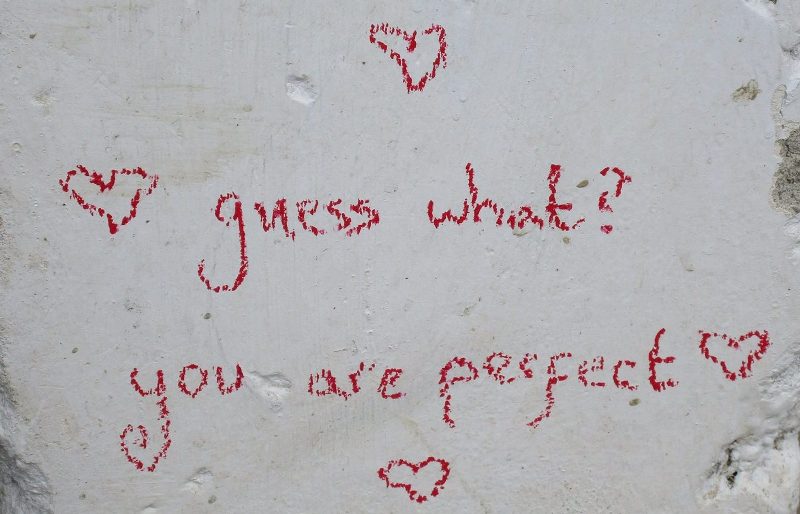 guess what?
you are perfect